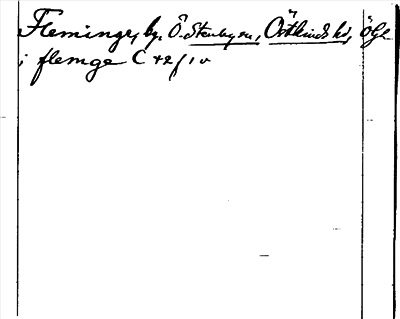 Fleminge, by. Ö. Stenby sn, Östkinds hd, Ögl.
i flemge C 42 f 1 v